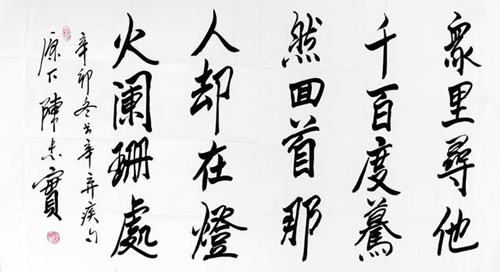 衆里尋他
千百度驀
然回首那
人却在燈
火阑珊處
辛卯冬书辛弃疾句
原下陳忠實